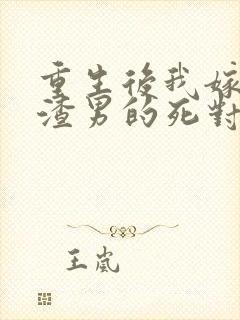 重生後我嫁
渣男的死對
王嵐